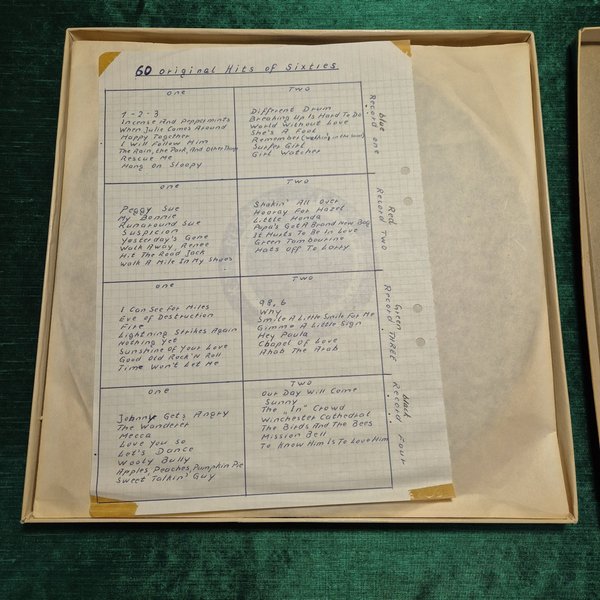 60 original Hits of Sixties
one
1-2-3
Incense And Peppermints
When Julie Comes Around
Happy Together
I Will Follow Him
The Rain, the Park, And Other Things
Rescue Me
Hang On Sloopy
Two
Different Drum
Breaking Up Is Hard To Do
World Without Love
She's A Fool
Remember (walking in the sand)
Surfer Girl
Girl Watcher
blue
Record one
one
Peggy Sue
My Bonnie
Runaround Sue
Suspicion
Yesterday's Gone
Walk Away, Renee
Hit The Road Jack
Walk A Mile In My Shoes
Two
Shakin' All Over
Hooray For Hazel
Little Honda
Papa's Got A Brand New Bag
It Hurts To Be In Love
Green Tambourine
Hats Off To Larry
Red
Record Two
one
I Can See For Miles
Eve of Destruction
Fire
Lightning Strikes Again
Nothing Yet
Sunshine Of Your Love
Good Old Rock'N Roll
Time Won't Let Me
Two
98,6
Why
Smile A Little Smile For Me
Gimme A Little Sign
Hey Paula
Chapel Of Love
Ahab The Arab
Green
Record THREE
one
Johnny Gets Angry
The Wanderer
Mecca
Love You So
Let's Dance
Wooly Bully
Apples, Peaches, Pumpkin Pie
Sweet Talkin' Guy
Two
Our Day Will Come
Sunny
The "In" Crowd
Winchester Cathedral
The Birds And The Bees
Mission Bell
To Know Him Is To Love Him
black
Record Four